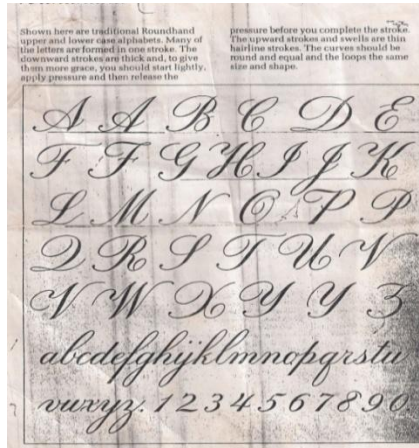 Shown here are traditional Roundhand
upper and lower case alphabets. Many of
the letters are formed in one stroke. The
downward strokes are thick and, to give
them more grace, you should start lightly,
apply pressure and then release the
pressure before you complete the stroke.
The upward strokes and swells are thin
hairline strokes. The curves should be
round and equal and the loops the same
size and shape.
A A B C D E
F F G H I J K
L M N O P P
Q R S T U V
V W X Y Y Z
abcdefghijklmnopqrstu
vwxyyz. 1234567890